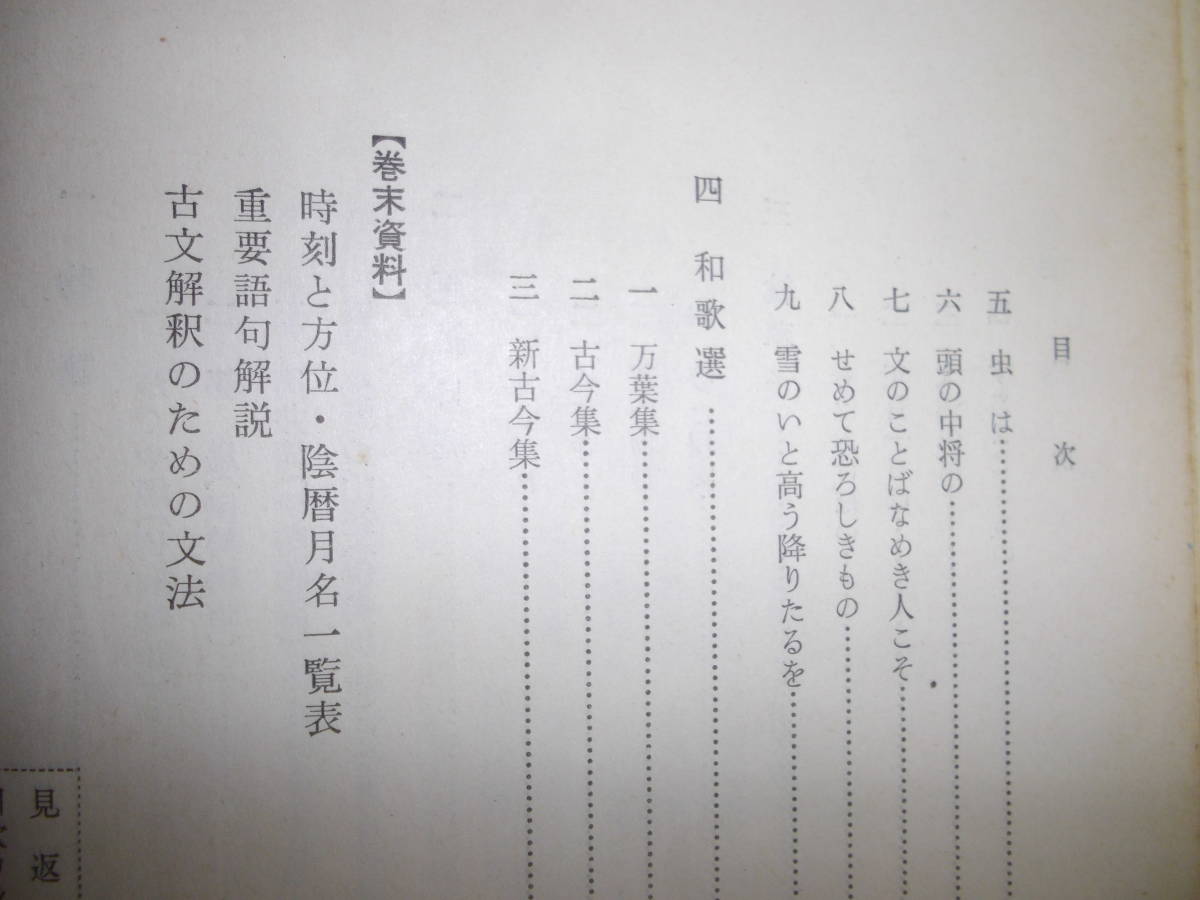 目次
五 虫は
六 頭の中将の
七 文のことばなめき人こそ
八 せめて恐ろしきもの
九 雪のいと高う降りたるを
四 和歌選
一 万葉集
二 古今集
三 新古今集
【巻末資料】
時刻と方位・陰暦月名一覧表
重要語句解説
古文解釈のための文法
見返